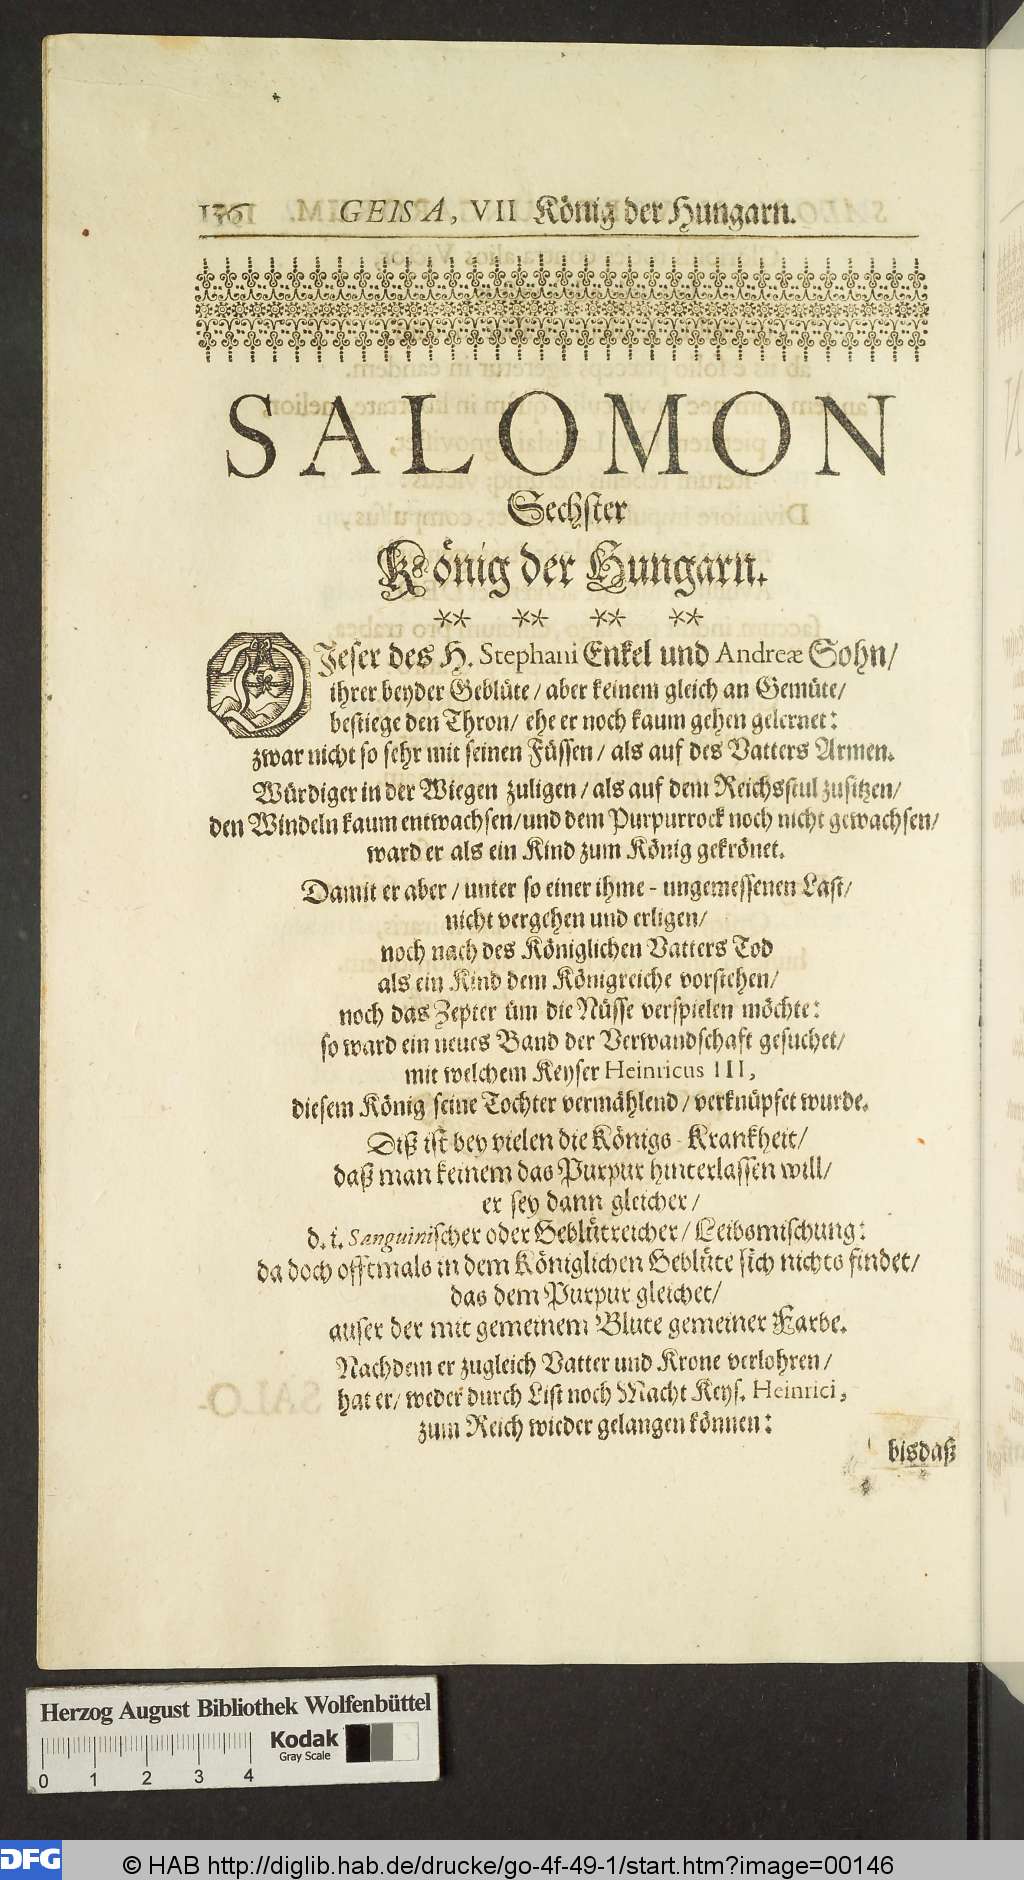 136 GEISA, VII König der Hungarn.
SALOMON
Sechster
König der Hungarn.
** ** ** **
DJeser des H. Stephani Enkel und Andreæ Sohn/
ihrer beyder Geblüte/ aber keinem gleich an Gemüte/
bestiege den Thron/ ehe er noch kaum gehen gelernet:
zwar nicht so sehr mit seinen Füssen/ als auf des Vatters Armen.
Würdiger in der Wiegen zuligen/ als auf dem Reichsstul zusitzen/
den Windeln kaum entwachsen/und dem Purpurrock noch nicht gewachsen/
ward er als ein Kind zum König gekrönet.
Damit er aber/ unter so einer ihme-ungemessenen Last/
nicht vergehen und erligen/
noch nach des Königlichen Vatters Tod
als ein Kind dem Königreiche vorstehen/
noch das Zepter üm die Nüsse verspielen möchte:
so ward ein neues Band der Verwandschaft gesuchet/
mit welchem Keyser Heinricus III,
diesem König seine Tochter vermählend/ verknüpfet wurde.
Diß ist bey vielen die Königs-Krankheit/
daß man keinem das Purpur hinterlassen will/
er sey dann gleicher/
d. i. Sanguinischer oder Geblütreicher/ Leibsmischung:
da doch offtmals in dem Königlichen Geblüte sich nichts findet/
das dem Purpur gleichet/
auser der mit gemeinem Blute gemeiner Farbe.
Nachdem er zugleich Vatter und Krone verlohren/
hat er/ weder durch List noch Macht Keys. Heinrici,
zum Reich wieder gelangen können:
bisdaß
Herzog August Bibliothek Wolfenbüttel
Kodak
Gray Scale
0 1 2 3 4
DFG
© HAB http://diglib.hab.de/drucke/go-4f-49-1/start.htm?image=00146